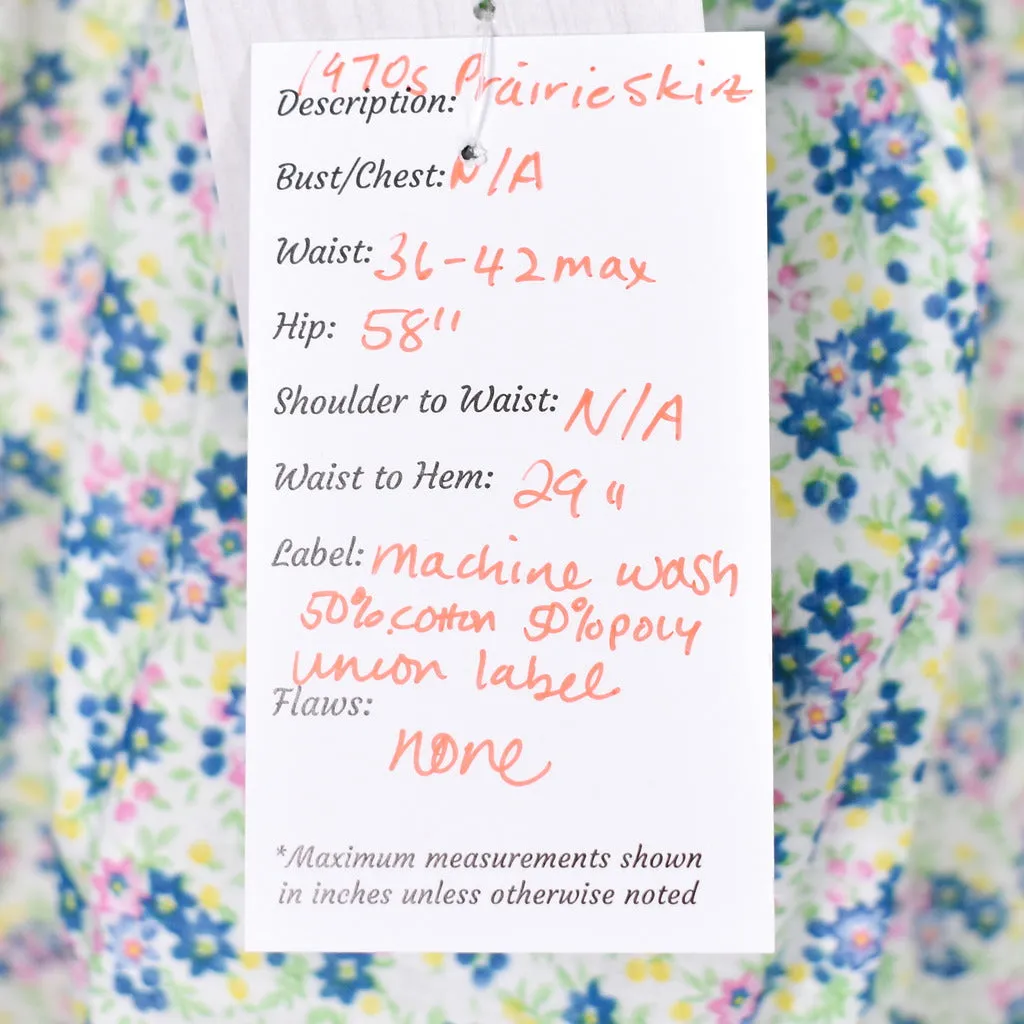 Description: 1970s Prairie Skirt
Bust/Chest: N/A
Waist: 36-42 max
Hip: 58"
Shoulder to Waist: N/A
Waist to Hem: 29"
Label: Machine wash
50% cotton 50% poly
union label
Flaws:
none
*Maximum measurements shown
in inches unless otherwise noted